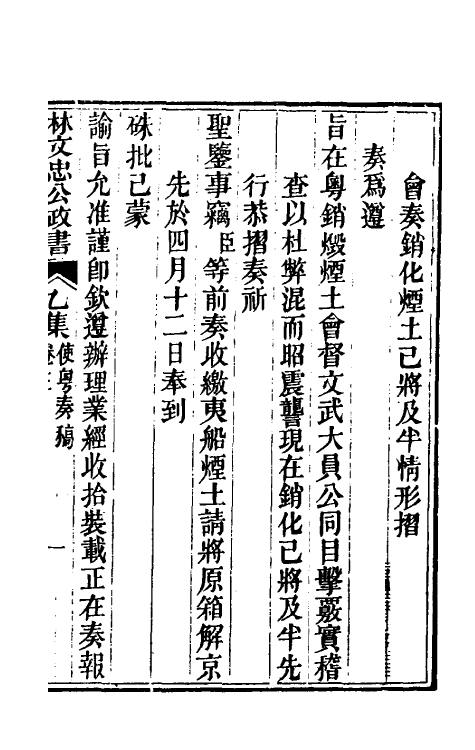 會奏銷化煙土已將及半情形摺
奏爲遵
旨在粵銷燬煙土會督文武大員公同目擊覈實稽
查以杜弊混而昭震讋現在銷化已將及半先
行恭摺奏祈
聖鑒事竊臣等前奏收繳夷船煙土請將原箱解京
先於四月十二日奉到
硃批已蒙
諭旨允准謹卽欽遵辦理業經收拾裝載正在奏報
林文忠公政書 乙集 使粵奏稿 卷 一